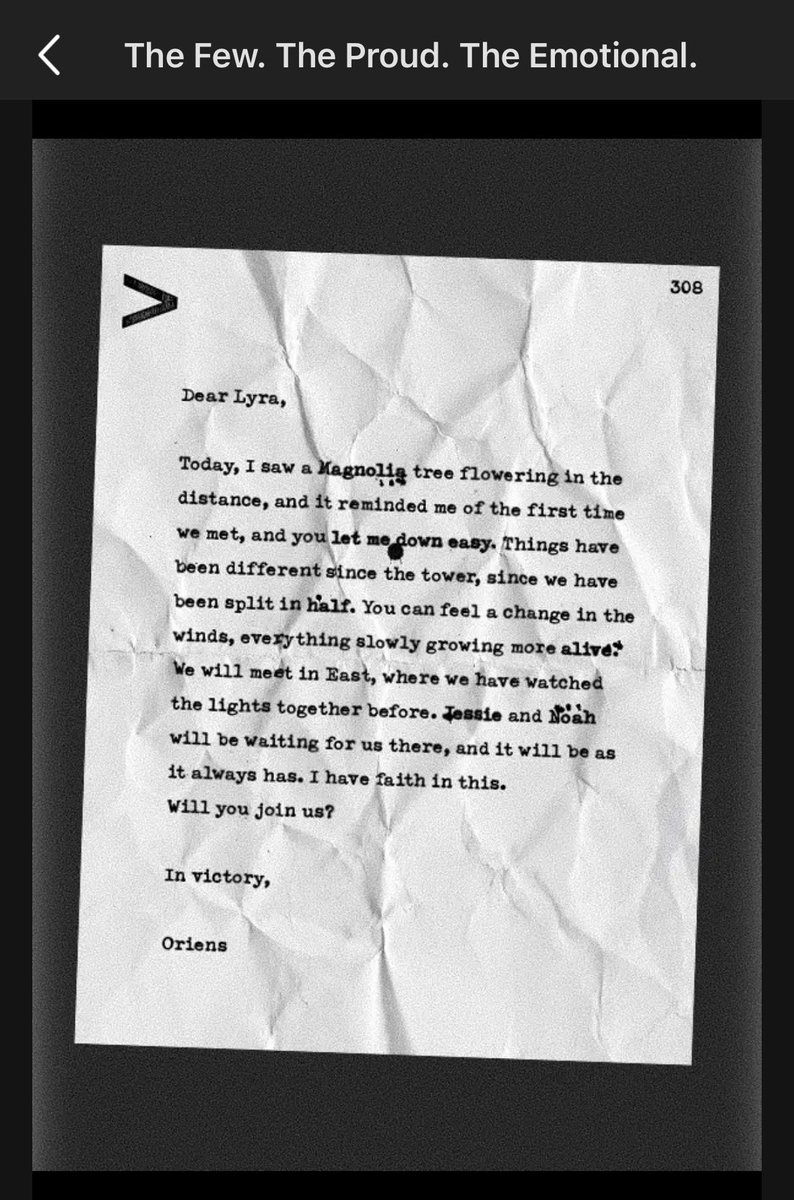 The Few. The Proud. The Emotional.
308
Dear Lyra,
Today, I saw a Magnolia tree flowering in the
distance, and it reminded me of the first time
we met, and you let me down easy. Things have
been different since the tower, since we have
been split in half. You can feel a change in the
winds, everything slowly growing more alive.
We will meet in East, where we have watched
the lights together before. Jessie and Noah
will be waiting for us there, and it will be as
it always has. I have faith in this.
Will you join us?
In victory,
Oriens